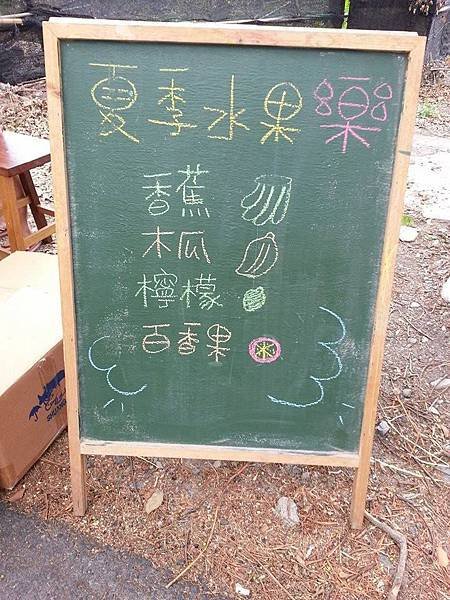 夏季水果樂
香蕉
木瓜
檸檬
百香果